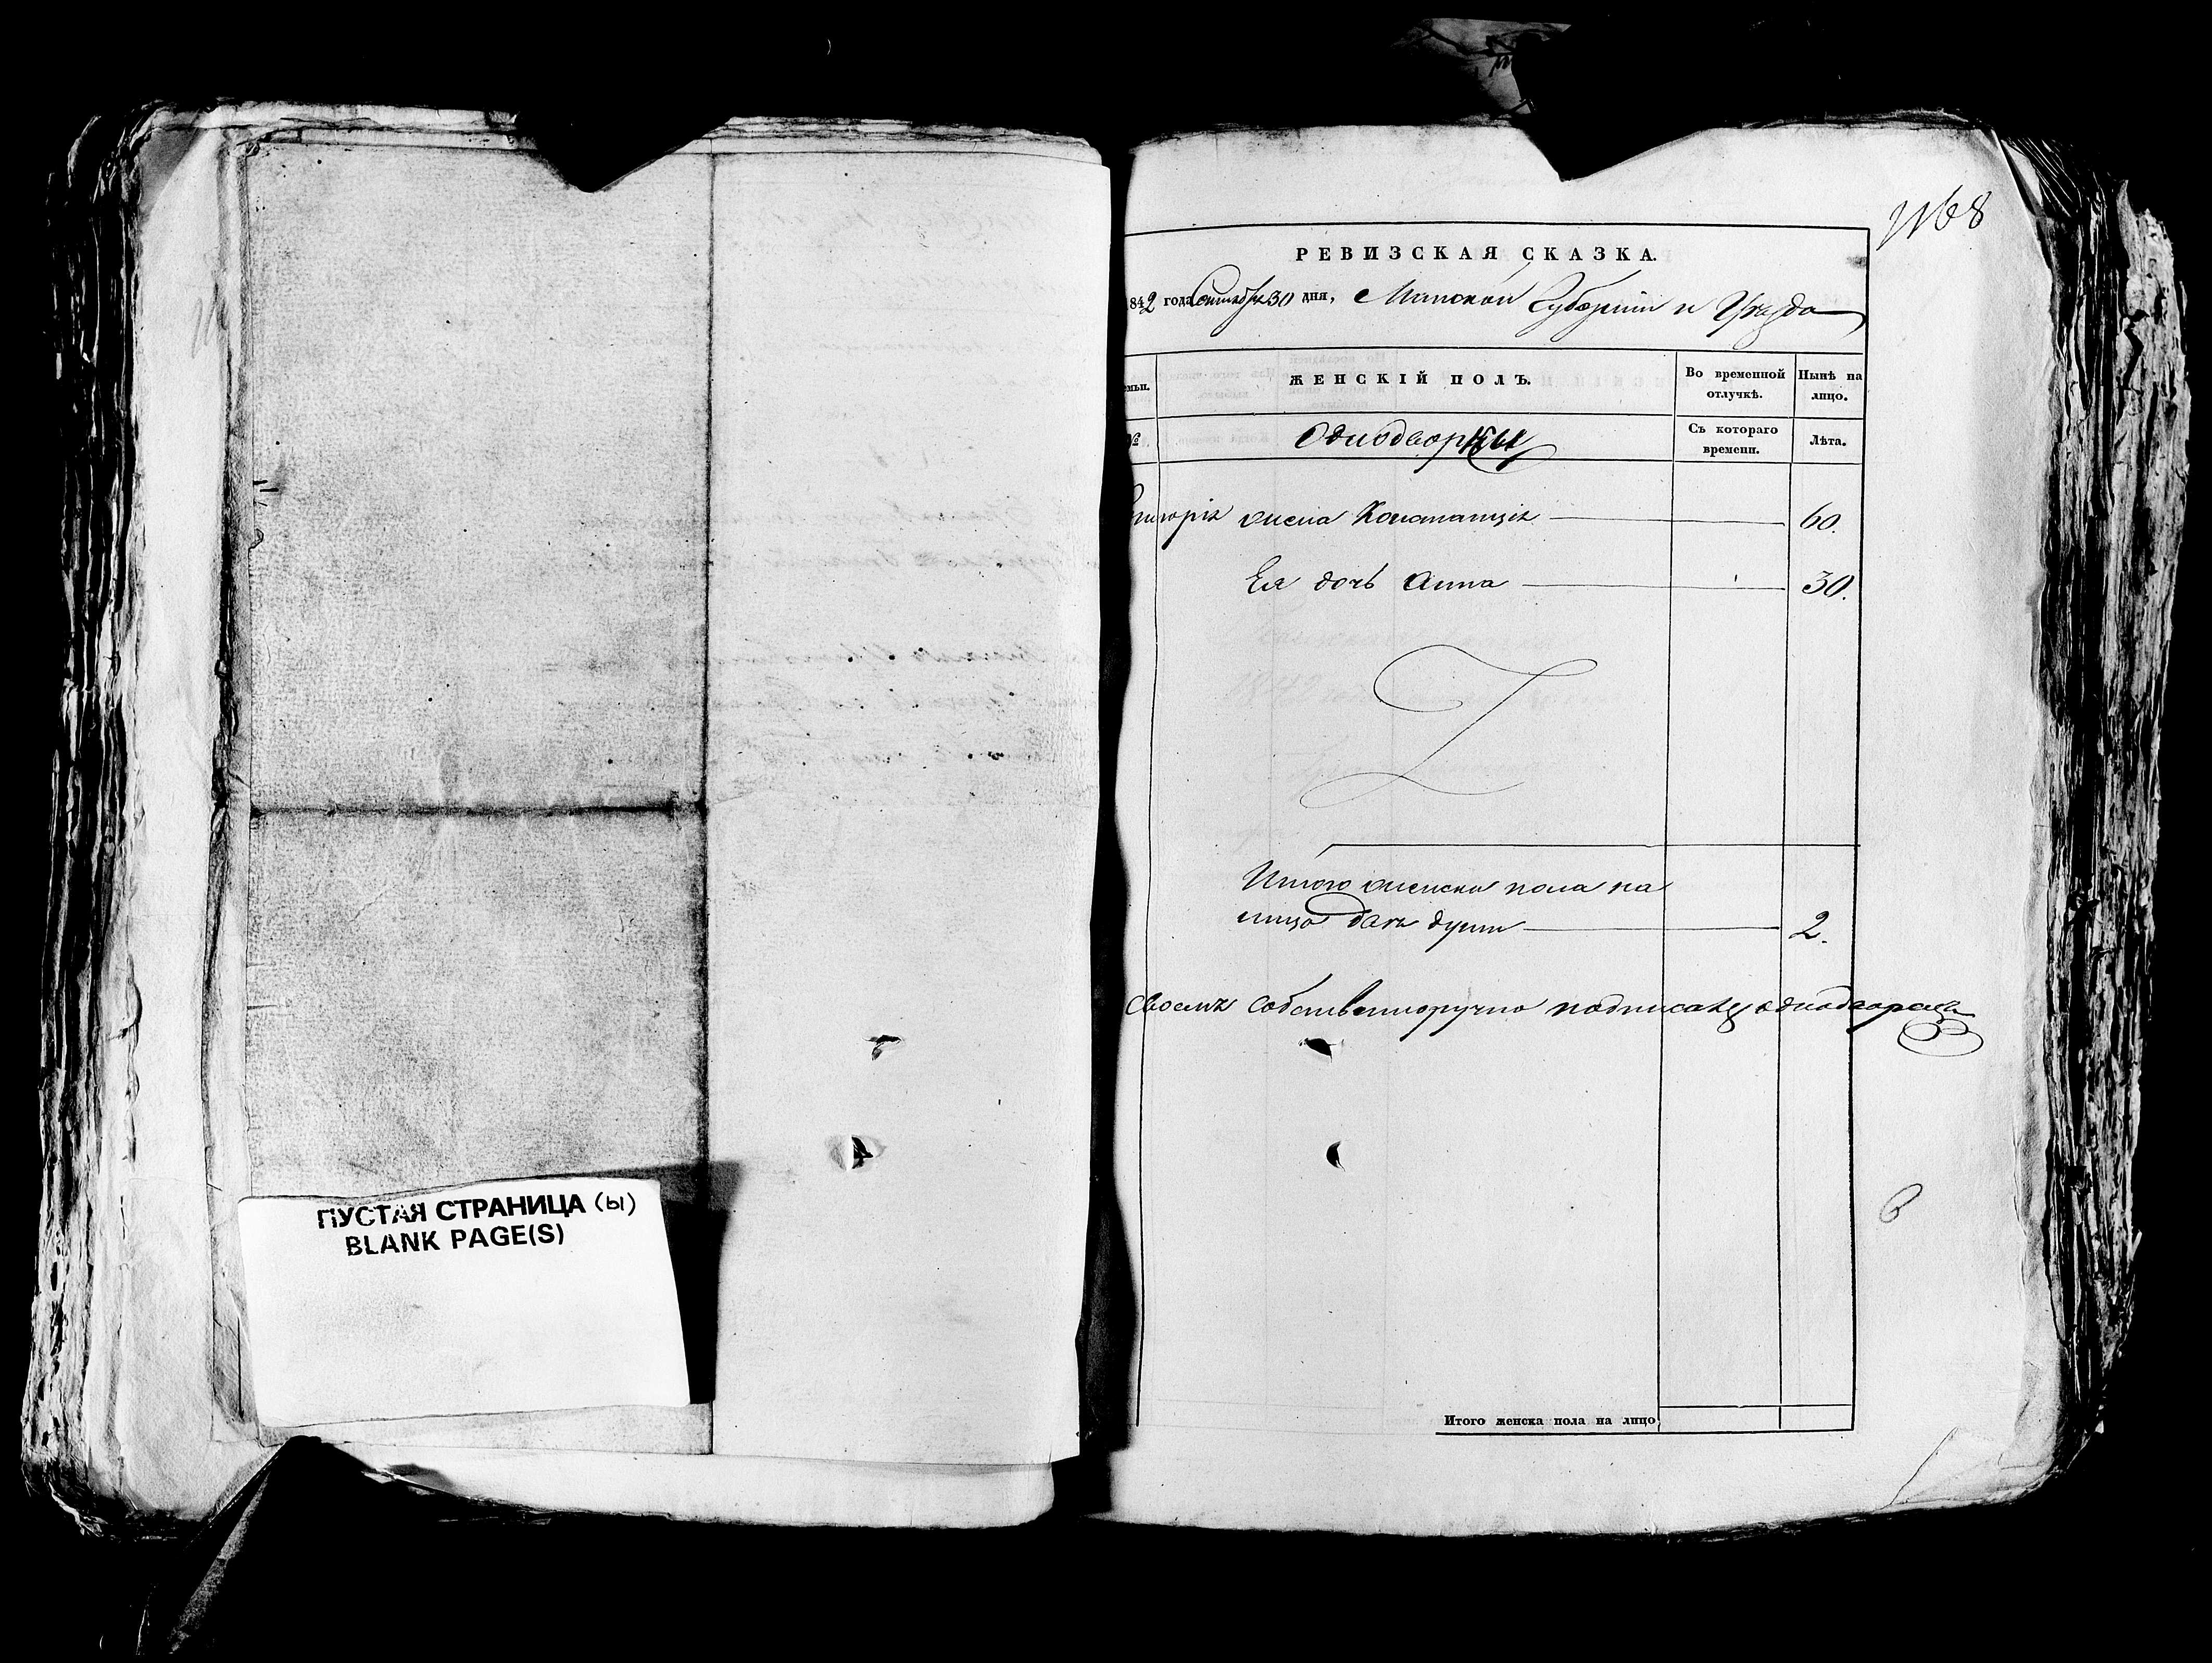 ПУСТАЯ СТРАНИЦА (ы)
BLANK PAGE(S)
1168
РЕВИЗСКАЯ СКАЗКА.
842 года Сентября 30 дня, Минской Губерніи и Уѣзда
ЖЕНСКІЙ ПОЛЪ.
Во временной отлучкѣ.
Нынѣ на лицо.
№
Однодворцы
Съ котораго времени.
Лѣта.
жена Констанція 60.
Ея дочь Анна 30.
Итого женска пола на
лицо двѣ души 2.
своемъ собственноручно подписалъ однодворецъ
Итого женска пола на лицо